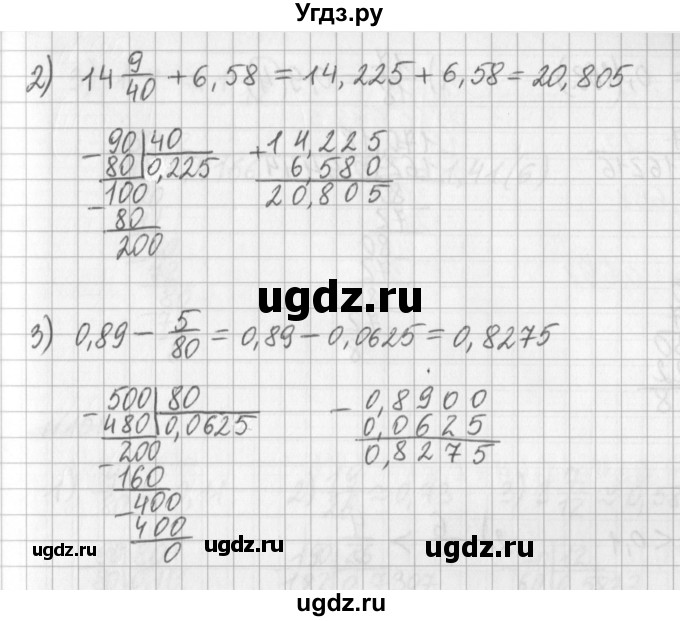 Угдз.ру
2) 14 9/40 + 6,58 = 14,225 + 6,58 = 20,805
- 90 | 40
80 | 0,225
100
- 80
200
+ 14,225
6,580
20,805
ugdz.ru
3) 0,89 - 5/80 = 0,89 - 0,0625 = 0,8275
- 500 | 80
480 | 0,0625
- 200
160
- 400
400
0
- 0,8900
0,0625
0,8275
ugdz.ru
ugdz.ru
ugdz.ru
ugdz.ru